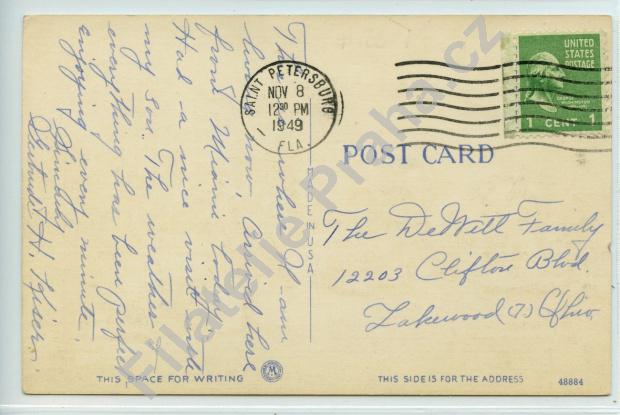 This is where I am
living now. Arrived here
from Miami today.
Had a nice visit with
my son. The weather &
everything has been perfect
enjoying every minute.
Sincerely
Gertrude H.
SAINT PETERSBURG
NOV 8
12 30 PM
1949
FLA.
UNITED
STATES
POSTAGE
GEORGE
WASHINGTON
1 CENT 1
POST CARD
MADE IN U.S.A.
The DeWitt Family
12203 Clifton Blvd.
Lakewood (7) Ohio
THIS SPACE FOR WRITING
THIS SIDE IS FOR THE ADDRESS
48884
Filatelie-Praha.cz